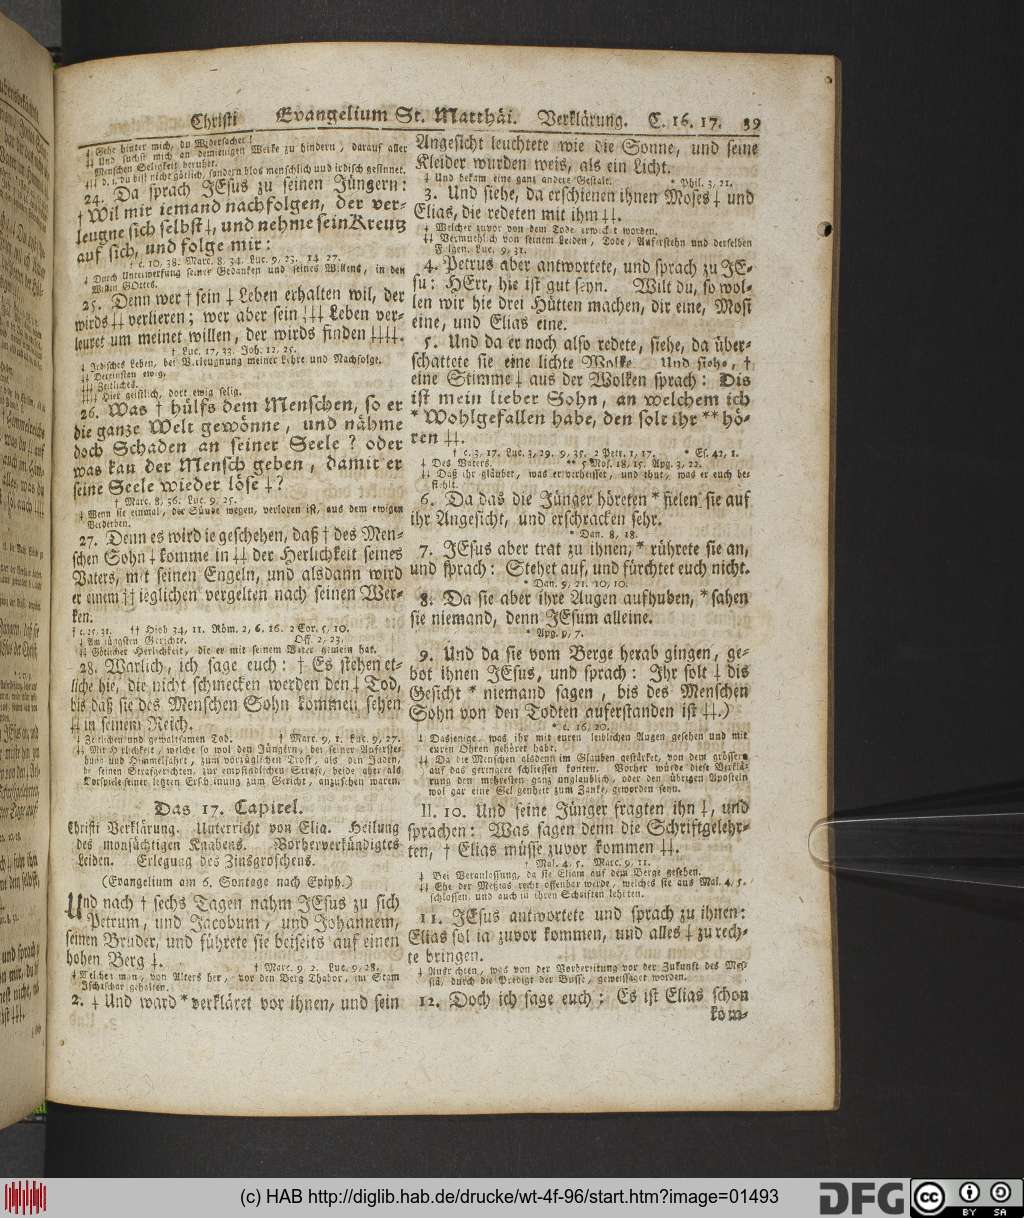 Christi Evangelium St. Matthäi. Verklärung. C. 16. 17. 39
‡ Gehe hinter mich, du Widersacher!
‡‡ Und suchst mich an demienigen Werke zu hindern, darauf aller
Menschen Seligkeit beruhet.
‡‡‡ d. i. du bist nicht götlich, sondern blos menschlich und irdisch gesinnet.
24. Da sprach JEsus zu seinen Jüngern:
† Wil mir iemand nachfolgen, der ver-
leugne sich selbst ‡, und nehme sein Kreutz
auf sich, und folge mir:
† c. 10, 38. Marc. 8, 34. Luc. 9, 23. 14, 27.
‡ Durch Unterwerfung seiner Gedanken und seines Willens, in den
Willen GOttes.
25. Denn wer † sein ‡ Leben erhalten wil, der
wirds ‡‡ verlieren; wer aber sein ‡‡‡ Leben ver-
leuret um meinet willen, der wirds finden ‡‡‡‡.
† Luc. 17, 33. Joh. 12, 25.
‡ Irdisches Leben, bei Verleugnung meiner Lehre und Nachfolge.
‡‡ Dereinsten ewig,
‡‡‡ Zeitliches.
‡‡‡‡ Hier geistlich, dort ewig selig.
26. Was † hülfs dem Menschen, so er
die ganze Welt gewönne, und nähme
doch Schaden an seiner Seele? oder
was kan der Mensch geben, damit er
seine Seele wieder löse ‡?
† Marc. 8, 36. Luc. 9, 25.
‡ Wenn sie einmal, der Sünde wegen, verloren ist, aus dem ewigen
Verderben.
27. Denn es wird ie geschehen, daß † des Men-
schen Sohn ‡ komme in ‡‡ der Herlichkeit seines
Vaters, mit seinen Engeln, und alsdann wird
er einem †† ieglichen vergelten nach seinen Wer-
ken.
† c. 25, 31. †† Hiob 34, 11. Röm. 2, 6. 16. 2 Cor. 5, 10.
‡ Am iüngsten Gerichte. Off. 2, 23.
‡‡ Götlicher Herlichkeit, die er mit seinem Vater gemein hat.
28. Warlich, ich sage euch: † Es stehen et-
liche hie, die nicht schmecken werden den ‡ Tod,
bis daß sie des Menschen Sohn kommen sehen
‡‡ in seinem Reich.
‡ Zeitlichen und gewaltsamen Tod. † Marc. 9, 1. Luc. 9, 27.
‡‡ Mit Herlichkeit, welche so wol den Jüngern, bei seiner Auferste-
hung und Himmelfahrt, zum vorzüglichen Trost, als den Juden,
bei seinen Strafgerichten, zur empfindlichen Strafe, beide aber als
Vorspiele seiner letzten Erscheinung zum Gericht, anzusehen waren.
Das 17. Capitel.
Christi Verklärung. Unterricht von Elia. Heilung
des monsüchtigen Knabens. Vorherverkündigtes
Leiden. Erlegung des Zinsgroschens.
(Evangelium am 6. Sontage nach Epiph.)
Und nach † sechs Tagen nahm JEsus zu sich
Petrum, und Jacobum, und Johannem,
seinen Bruder, und führete sie beiseits auf einen
hohen Berg ‡.
† Marc. 9, 2. Luc. 9, 28.
‡ Welcher man, von Alters her, vor den Berg Thabor, im Stam
Isaschar gehalten.
2. ‡ Und ward * verkläret vor ihnen, und sein
Angesicht leuchtete wie die Sonne, und seine
Kleider wurden weis, als ein Licht.
‡ Und bekam eine ganz andere Gestalt. * Phil. 3, 21.
3. Und siehe, da erschienen ihnen Moses ‡ und
Elias, die redeten mit ihm ‡‡.
‡ Welcher zuvor von dem Tode erweckt worden.
‡‡ Vermuthlich von seinem Leiden, Tode, Auferstehn und derselben
Folgen. Luc. 9, 31.
4. Petrus aber antwortete, und sprach zu JE-
su: HErr, hie ist gut seyn. Wilt du, so wol-
len wir hie drei Hütten machen, dir eine, Mosi
eine, und Elias eine.
5. Und da er noch also redete, siehe, da über-
schattete sie eine lichte Wolke. Und siehe, †
eine Stimme ‡ aus der Wolken sprach: Dis
ist mein lieber Sohn, an welchem ich
* Wohlgefallen habe, den solt ihr ** hö-
ren ‡‡.
† c. 3, 17. Luc. 3, 29. 9, 35. 2 Petr. 1, 17. * Es. 42, 1.
‡ Des Vaters. ** 5 Mos. 18, 15. Apg. 3, 22.
‡‡ Daß ihr gläubet, was er verheisset, und thut, was er euch be-
fiehlt.
6. Da das die Jünger höreten * fielen sie auf
ihr Angesicht, und erschracken sehr.
* Dan. 8, 18.
7. JEsus aber trat zu ihnen, * rührete sie an,
und sprach: Stehet auf, und fürchtet euch nicht.
* Dan. 9, 21. 10, 10.
8. Da sie aber ihre Augen aufhuben, * sahen
sie niemand, denn JEsum alleine.
* Apg. 9, 7.
9. Und da sie vom Berge herab gingen, ge-
bot ihnen JEsus, und sprach: Ihr solt ‡ dis
Gesicht * niemand sagen, bis des Menschen
Sohn von den Todten auferstanden ist ‡‡.)
* c. 16, 20.
‡ Dasienige, was ihr mit euren leiblichen Augen gesehen und mit
euren Ohren gehöret habt.
‡‡ Da die Menschen alsdenn im Glauben gestärket, von dem grössern
auf das geringere schliessen konten. Vorher würde diese Verklä-
rung den mehresten ganz unglaublich, oder den übrigen Aposteln
wol gar eine Gelegenheit zum Zanke, geworden seyn.
II. 10. Und seine Jünger fragten ihn ‡, und
sprachen: Was sagen denn die Schriftgelehr-
ten, † Elias müsse zuvor kommen ‡‡.
† Mal. 4, 5. Marc. 9, 11.
‡ Bei Veranlassung, da sie Eliam auf dem Berge gesehen.
‡‡ Ehe der Meßias recht offenbar werde, welches sie aus Mal. 4, 5.
schlossen, und auch in ihren Schriften lehrten.
11. JEsus antwortete und sprach zu ihnen:
Elias sol ia zuvor kommen, und alles ‡ zu rech-
te bringen.
‡ Ausrichten, was von der Vorbereitung vor der Zukunft des Mes-
siä, durch die Predigt der Busse, geweissaget worden.
12. Doch ich sage euch: Es ist Elias schon
kom-
(c) HAB http://diglib.hab.de/drucke/wt-4f-96/start.htm?image=01493
DFG
cc
BY SA